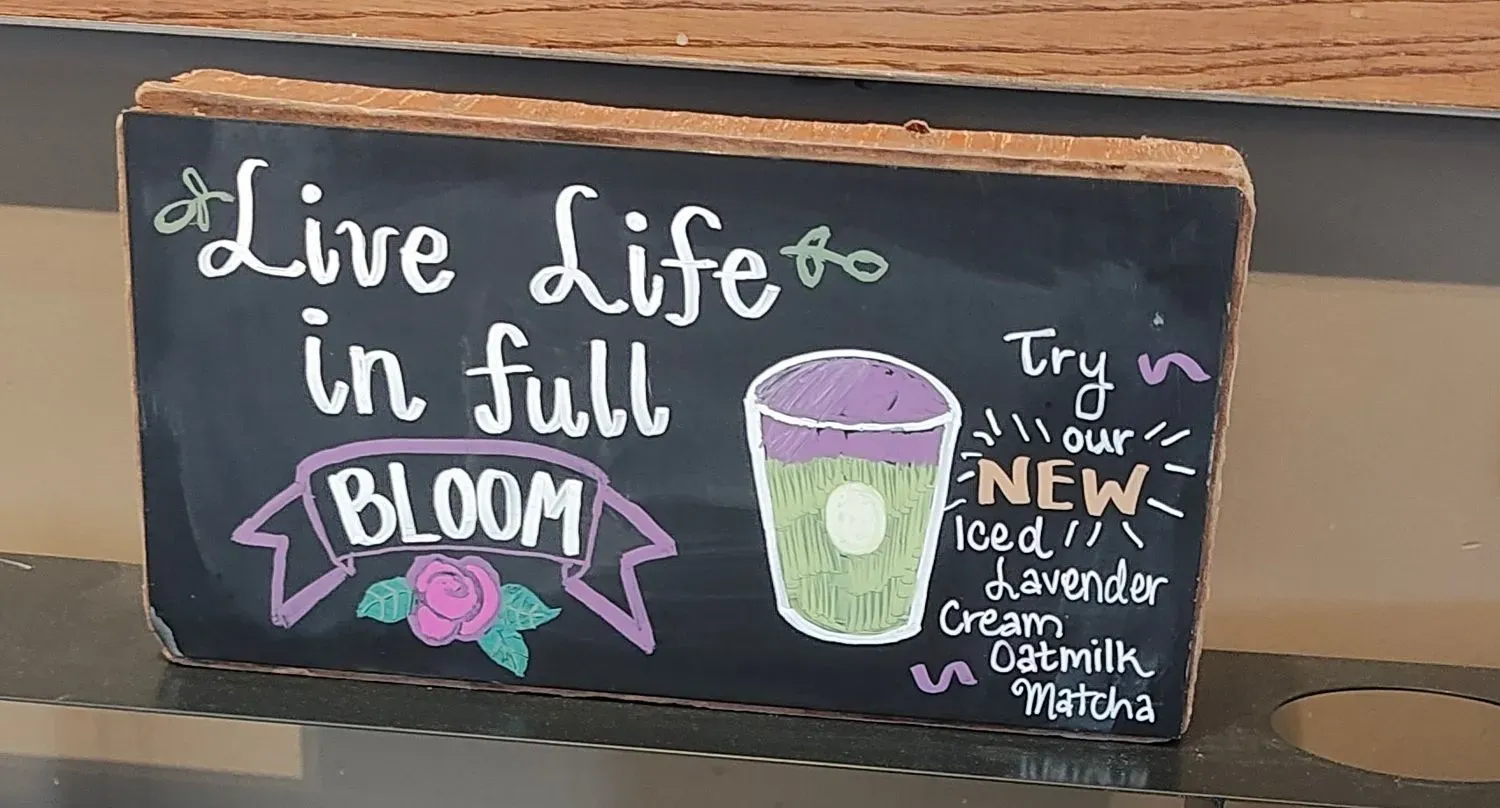 Live Life
in full
BLOOM
Try
our
NEW
Iced
Lavender
Cream
Oatmilk
Matcha